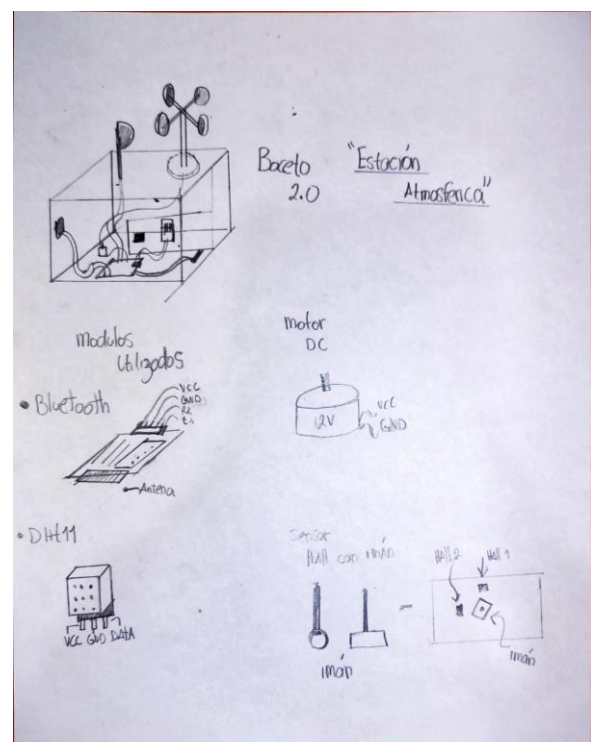 Boceto
2.0
"Estación
Atmosferica"
modulos
Utilizados
• Bluetooth
VCC
GND
RX
TX
Antena
motor
DC
12V
VCC
GND
• DHT11
VCC GND DATA
Sensor
Hall con imán
imán
Hall 2
Hall 1
imán